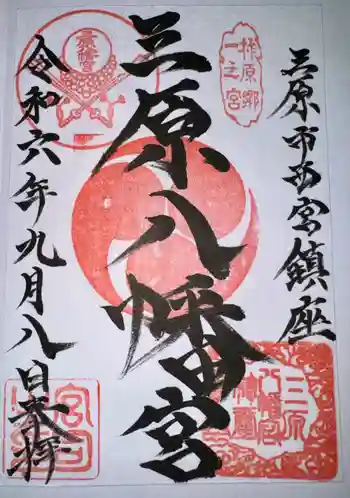 三原市西宮鎮座
柞原郷
一之宮
三原八幡宮
三原
八幡宮
神璽
令和六年九月八日奉拝